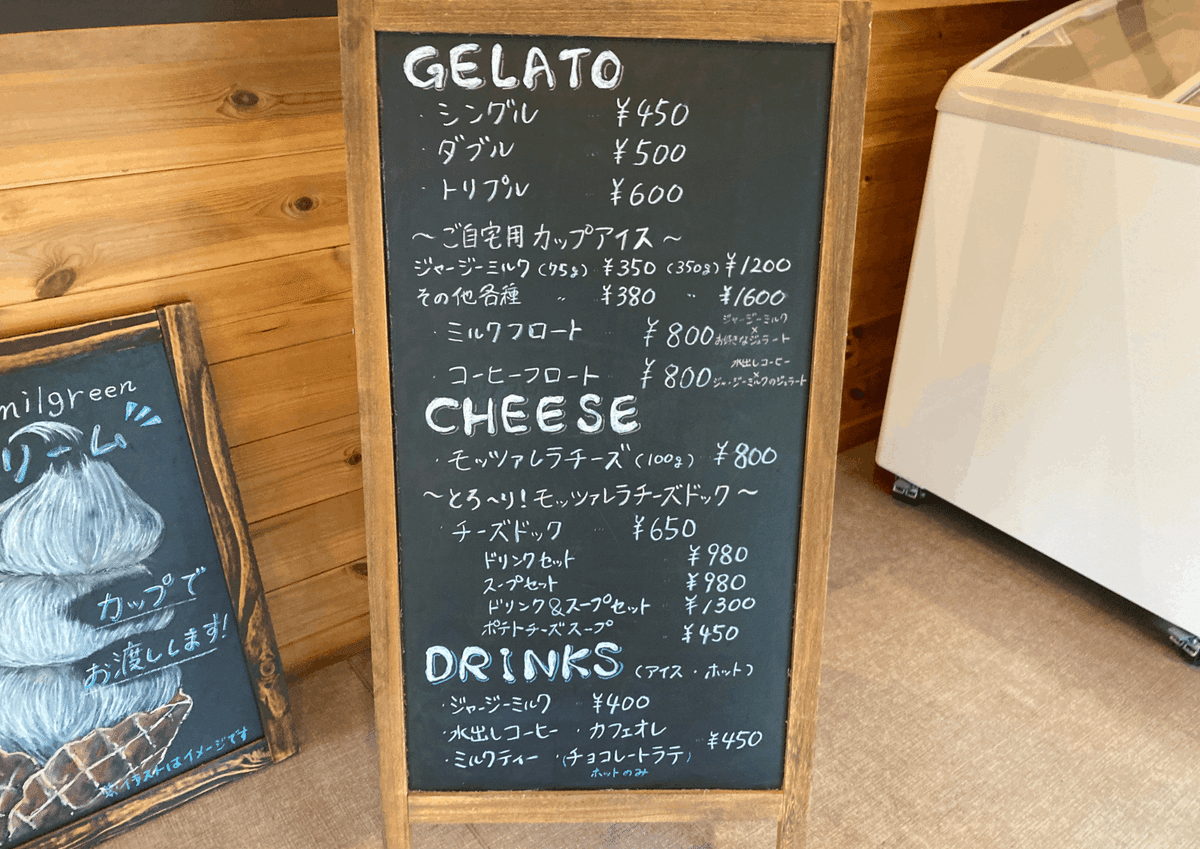 GELATO
・シングル ¥450
・ダブル ¥500
・トリプル ¥600
～ご自宅用カップアイス～
ジャージーミルク(75g) ¥350 (350g) ¥1200
その他各種 〃 ¥380 〃 ¥1600
・ミルクフロート ¥800 ジャージーミルク
×
お好きなジェラート
・コーヒーフロート ¥800 水出しコーヒー
×
ジャージーミルクのジェラート
CHEESE
・モッツァレラチーズ(100g) ¥800
～とろ～り!モッツァレラチーズドック～
・チーズドック ¥650
ドリンクセット ¥980
スープセット ¥980
ドリンク&スープセット ¥1300
ポテトチーズスープ ¥450
DRINKS (アイス・ホット)
・ジャージーミルク ¥400
・水出しコーヒー ・カフェオレ
・ミルクティー ・(チョコレートラテ) ¥450
ホットのみ
milgreen
リーム
カップで
お渡しします!
※イラストはイメージです